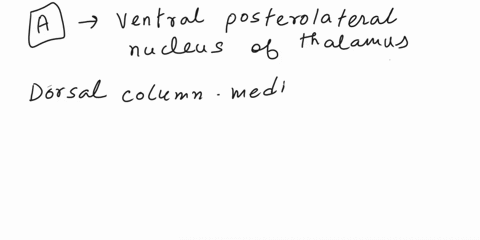 A → Ventral posterolateral
nucleus of thalamus
Dorsal column. medi